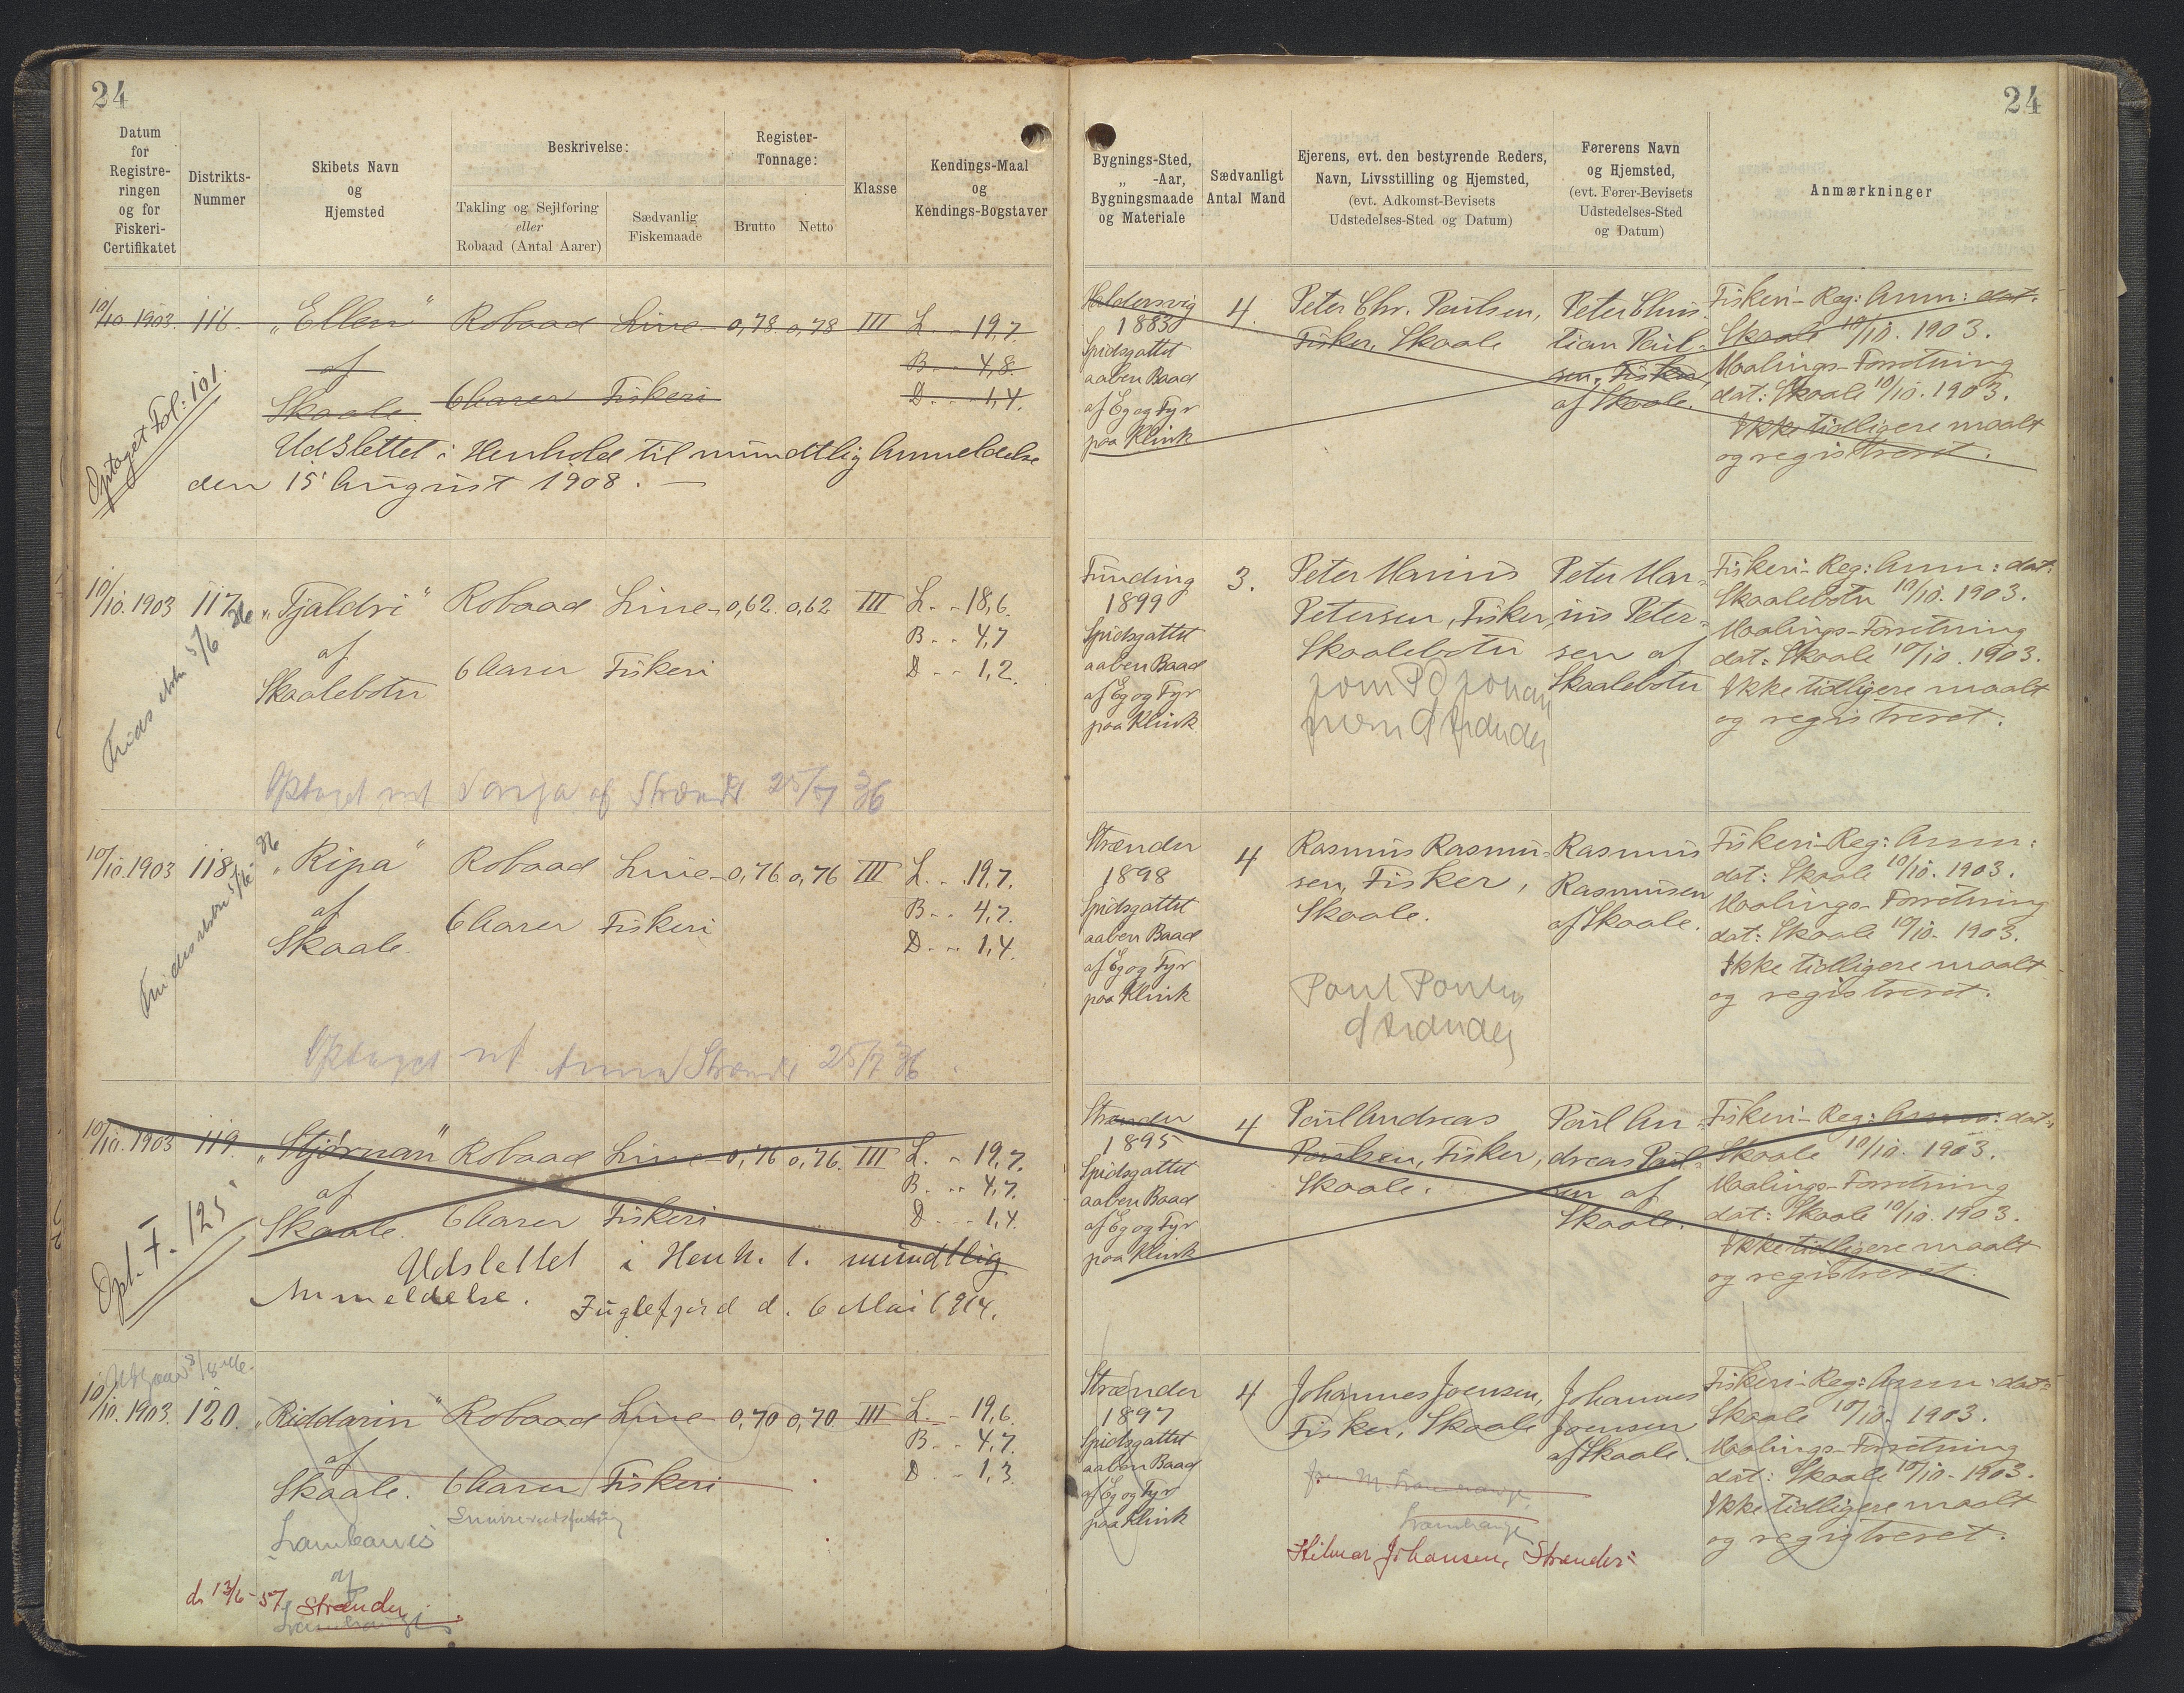 24
24
Datum
for
Registre-
ringen
og for
Fiskeri-
Certifikatet
Distrikts-
Nummer
Skibets Navn
og
Hjemsted
Beskrivelse:
Takling og Sejlføring
eller
Robaad (Antal Aarer)
Sædvanlig
Fiskemaade
Register-
Tonnage:
Brutto
Netto
Klasse
Kendings-Maal
og
Kendings-Bogstaver
Bygnings-Sted,
„ -Aar,
Bygningsmaade
og Materiale
Sædvanligt
Antal Mand
Ejerens, evt. den bestyrende Reders,
Navn, Livsstilling og Hjemsted,
(evt. Adkomst-Bevisets
Udstedelses-Sted og Datum)
Førerens Navn
og Hjemsted,
(evt. Fører-Bevisets
Udstedelses-Sted
og Datum)
Anmærkninger
10/10 1903. 116. „Ellen“ Robaad Line- 0,78 0,78 III L. - 19,7.
af B. - 4,8.
Skaale. 6 Aarer Fiskeri D. - 1,4.
Optaget Fol: 101.
Udslettet i Henhold til mundtlig Anmeldelse
den 15 August 1908. —
Haldersvig
1883
Spidsgattet
aaben Baad
af Eg og Fyr
paa Klink
4.
Peter Chr. Paulsen,
Fisker, Skaale
Peter Chris-
tian Paul-
sen, Fisker,
af Skaale.
Fiskeri-Reg: Anm: dat:
Skaale 10/10. 1903.
Maalings-Forretning
dat: Skaale 10/10. 1903.
Ikke tidligere maalt
og registreret.
10/10. 1903 117. „Tjaldri“ Robaad Line- 0,62. 0,62 III L. - 18,6.
af B. - 4,7
Skaalebotn 6 Aarer Fiskeri D. - 1,2.
5/6 36
Optaget ved Sonja af Strænder 25/7 36
Funding
1899
Spidsgattet
aaben Baad
af Eg og Fyr
paa Klink
3.
Peter Marius
Petersen, Fisker,
Skaalebotn
Strænder
Peter Mar-
ius Peter-
sen af
Skaalebotn
Fiskeri-Reg: Anm: dat:
Skaalebotn 10/10. 1903.
Maalings-Forretning
dat: Skaale 10/10. 1903.
Ikke tidligere maalt
og registreret.
10/10. 1903 118. „Ripa“ Robaad Line- 0,76 0,76 III L. - 19,7.
af B. - 4,7.
Skaale. 6 Aarer Fiskeri D. - 1,4.
5/6 - 36
Optaget ved Anna Strænder 25/7 36
Strænder
1898
Spidsgattet
aaben Baad
af Eg og Fyr
paa Klink
4
Rasmus Rasmu-
sen, Fisker,
Skaale.
Poul Poulsen
Strænder
Rasmus
Rasmusen
af Skaale.
Fiskeri-Reg: Anm:
dat: Skaale 10/10. 1903.
Maalings-Forretning
dat: Skaale 10/10. 1903.
Ikke tidligere maalt
og registreret.
10/10. 1903 119. „Stjørnan“ Robaad Line- 0,76 0,76. III L. - 19,7.
af B. - 4,7.
Skaale. 6 Aarer Fiskeri D. - 1,4.
Opt. F. 125
Udslettet i Henh. t. mundtlig
Anmeldelse. Fuglefjord d. 6 Mai 1914.
Strænder
1895
Spidsgattet
aaben Baad
af Eg og Fyr
paa Klink
4
Poul Andreas
Poulsen, Fisker,
Skaale.
Poul An-
dreas Poul-
sen af
Skaale.
Fiskeri-Reg: Anm: dat:
Skaale 10/10. 1903.
Maalings-Forretning
dat: Skaale 10/10. 1903.
Ikke tidligere maalt
og registreret.
10/10. 1903. 120. „Riddarin“ Robaad Line- 0,70 0,70. III L. - 19,6.
af B. - 4,7.
Skaale. 6 Aarer Fiskeri D. - 1,3.
Lambareiði
af
d. 13/6-57. Strænder
Strænder
1897
Spidsgattet
aaben Baad
af Eg og Fyr
paa Klink
4
Johannes Joensen,
Fisker, Skaale
Hilmar Johansen, Strænder
Johannes
Joensen
af Skaale.
Fiskeri-Reg: Anm: dat:
Skaale 10/10. 1903.
Maalings-Forretning
dat: Skaale 10/10-1903.
Ikke tidligere maalt
og registreret.